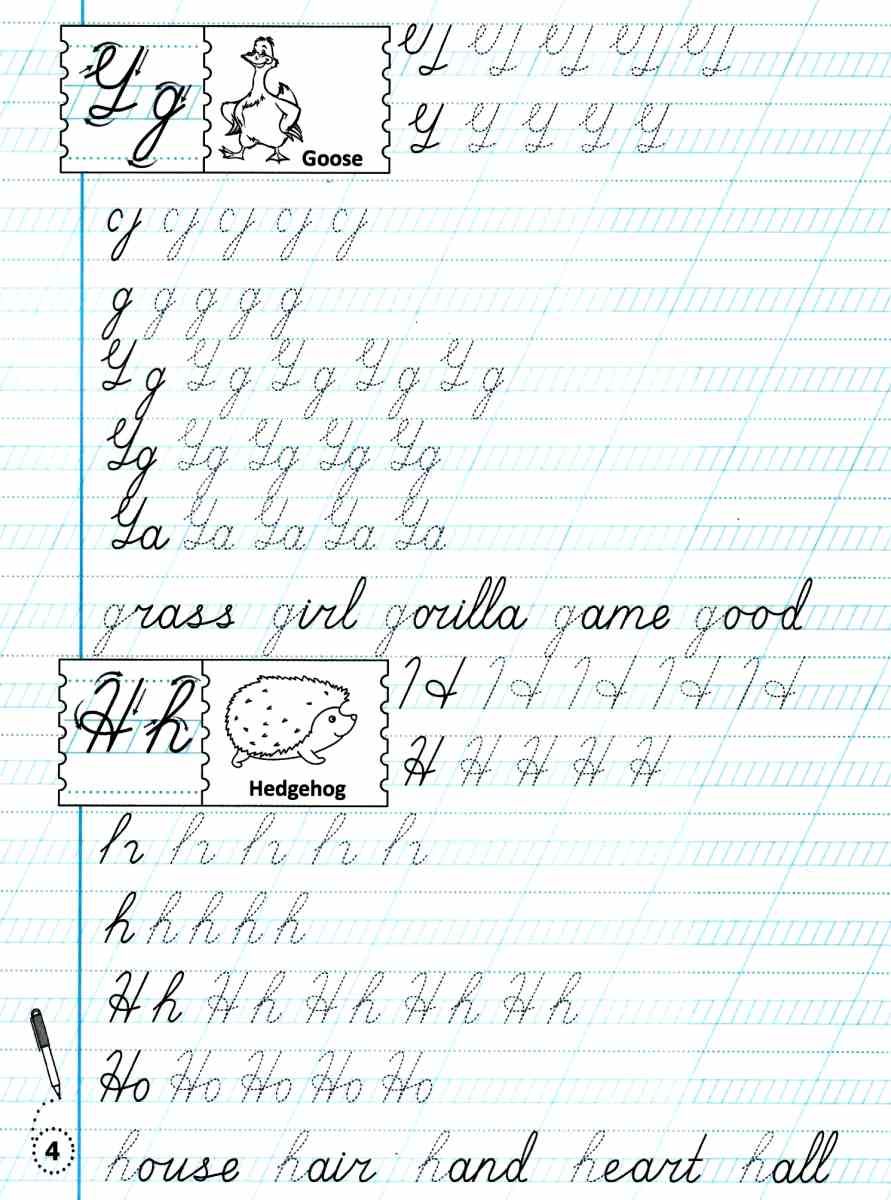 G g
Goose
G G G G G
G G G G G
g g g g g
g g g g g
G g G g G g G g G g
Gg Gg Gg Gg Gg
Ga Ga Ga Ga Ga
grass girl gorilla game good
H h
Hedgehog
H H H H H
H H H H H
h h h h h
h h h h h
H h H h H h H h H h
Ho Ho Ho Ho Ho
4
house hair hand heart hall